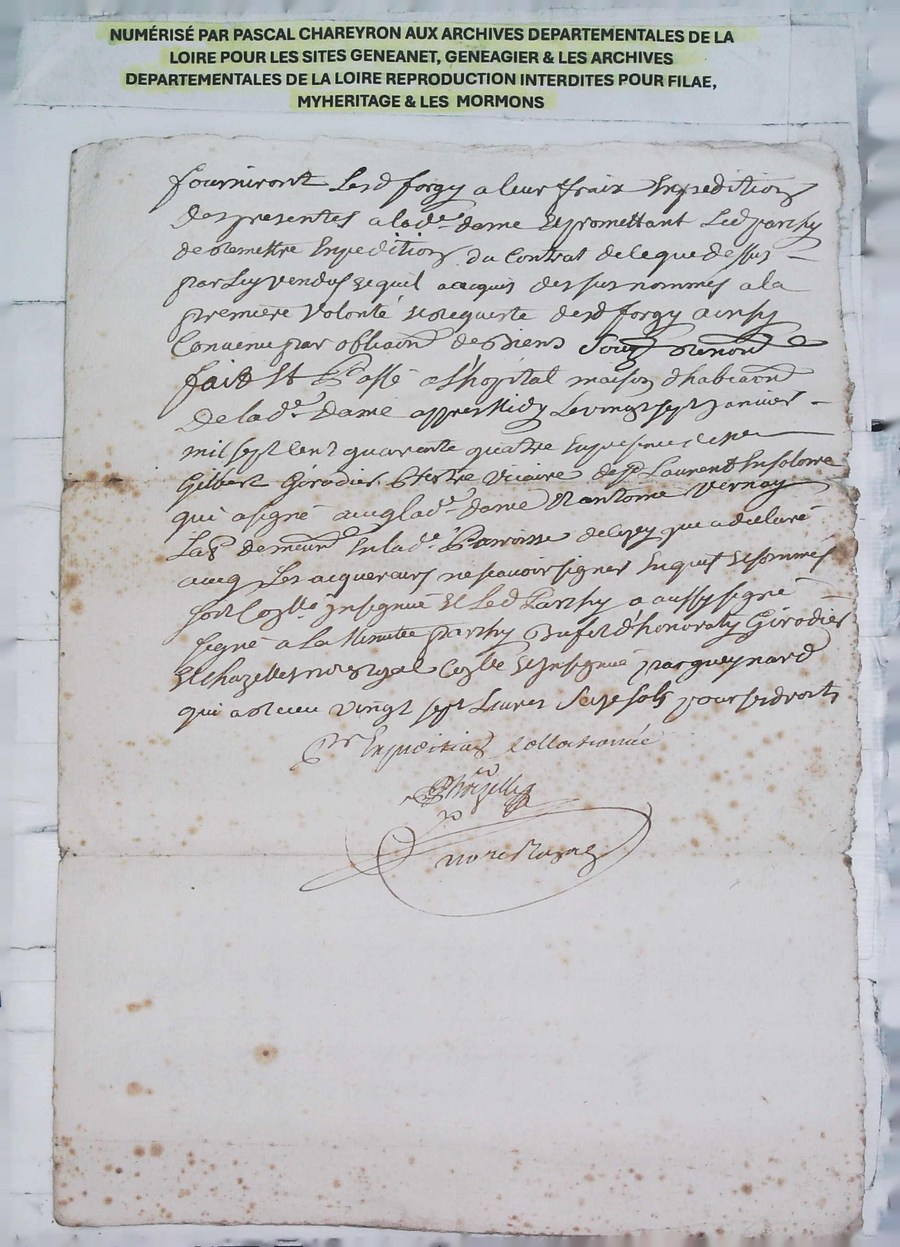 NUMÉRISÉ PAR PASCAL CHAREYRON AUX ARCHIVES DEPARTEMENTALES DE LA
LOIRE POUR LES SITES GENEANET, GENEAGIER & LES ARCHIVES
DEPARTEMENTALES DE LA LOIRE REPRODUCTION INTERDITES POUR FILAE,
MYHERITAGE & LES MORMONS
fourniront Lesd forgy a leur ffraix Expedition
des presentes a lade dame Et promettant Led parchy
de remettre Expedition du Contrat de ce que dessus
par Luy vendus Et quil a acquis des sus nommés a la
premiere Volonté et requeste desd forgy ainsy
Convenu par de biens
fait Et Passé a L'hopital maison d'habiaon
de lade Dame appres Midy Le vingt sept Janvier
mil sept Cent quarante quatre En presence de
Gilbert Girodier Pbre Vicaire de St Laurent En Solore
qui a signé avec lade Dame Et antoine Vernay
demeurt En lade Parroisse de qui a declaré
Les acquereurs ne scavoir signer Enquis Et sommés
Insignué Et Led Parchy a aussy signé
signé a La Minutte Parchy d'honoraty Girodier
Et Chazelles no re Royal Et Insignué par gueynard
qui a receu vingt sept Livres Seize sols pour ses droits
Pr Expedition Collationnée
Chazelles
no re Royal